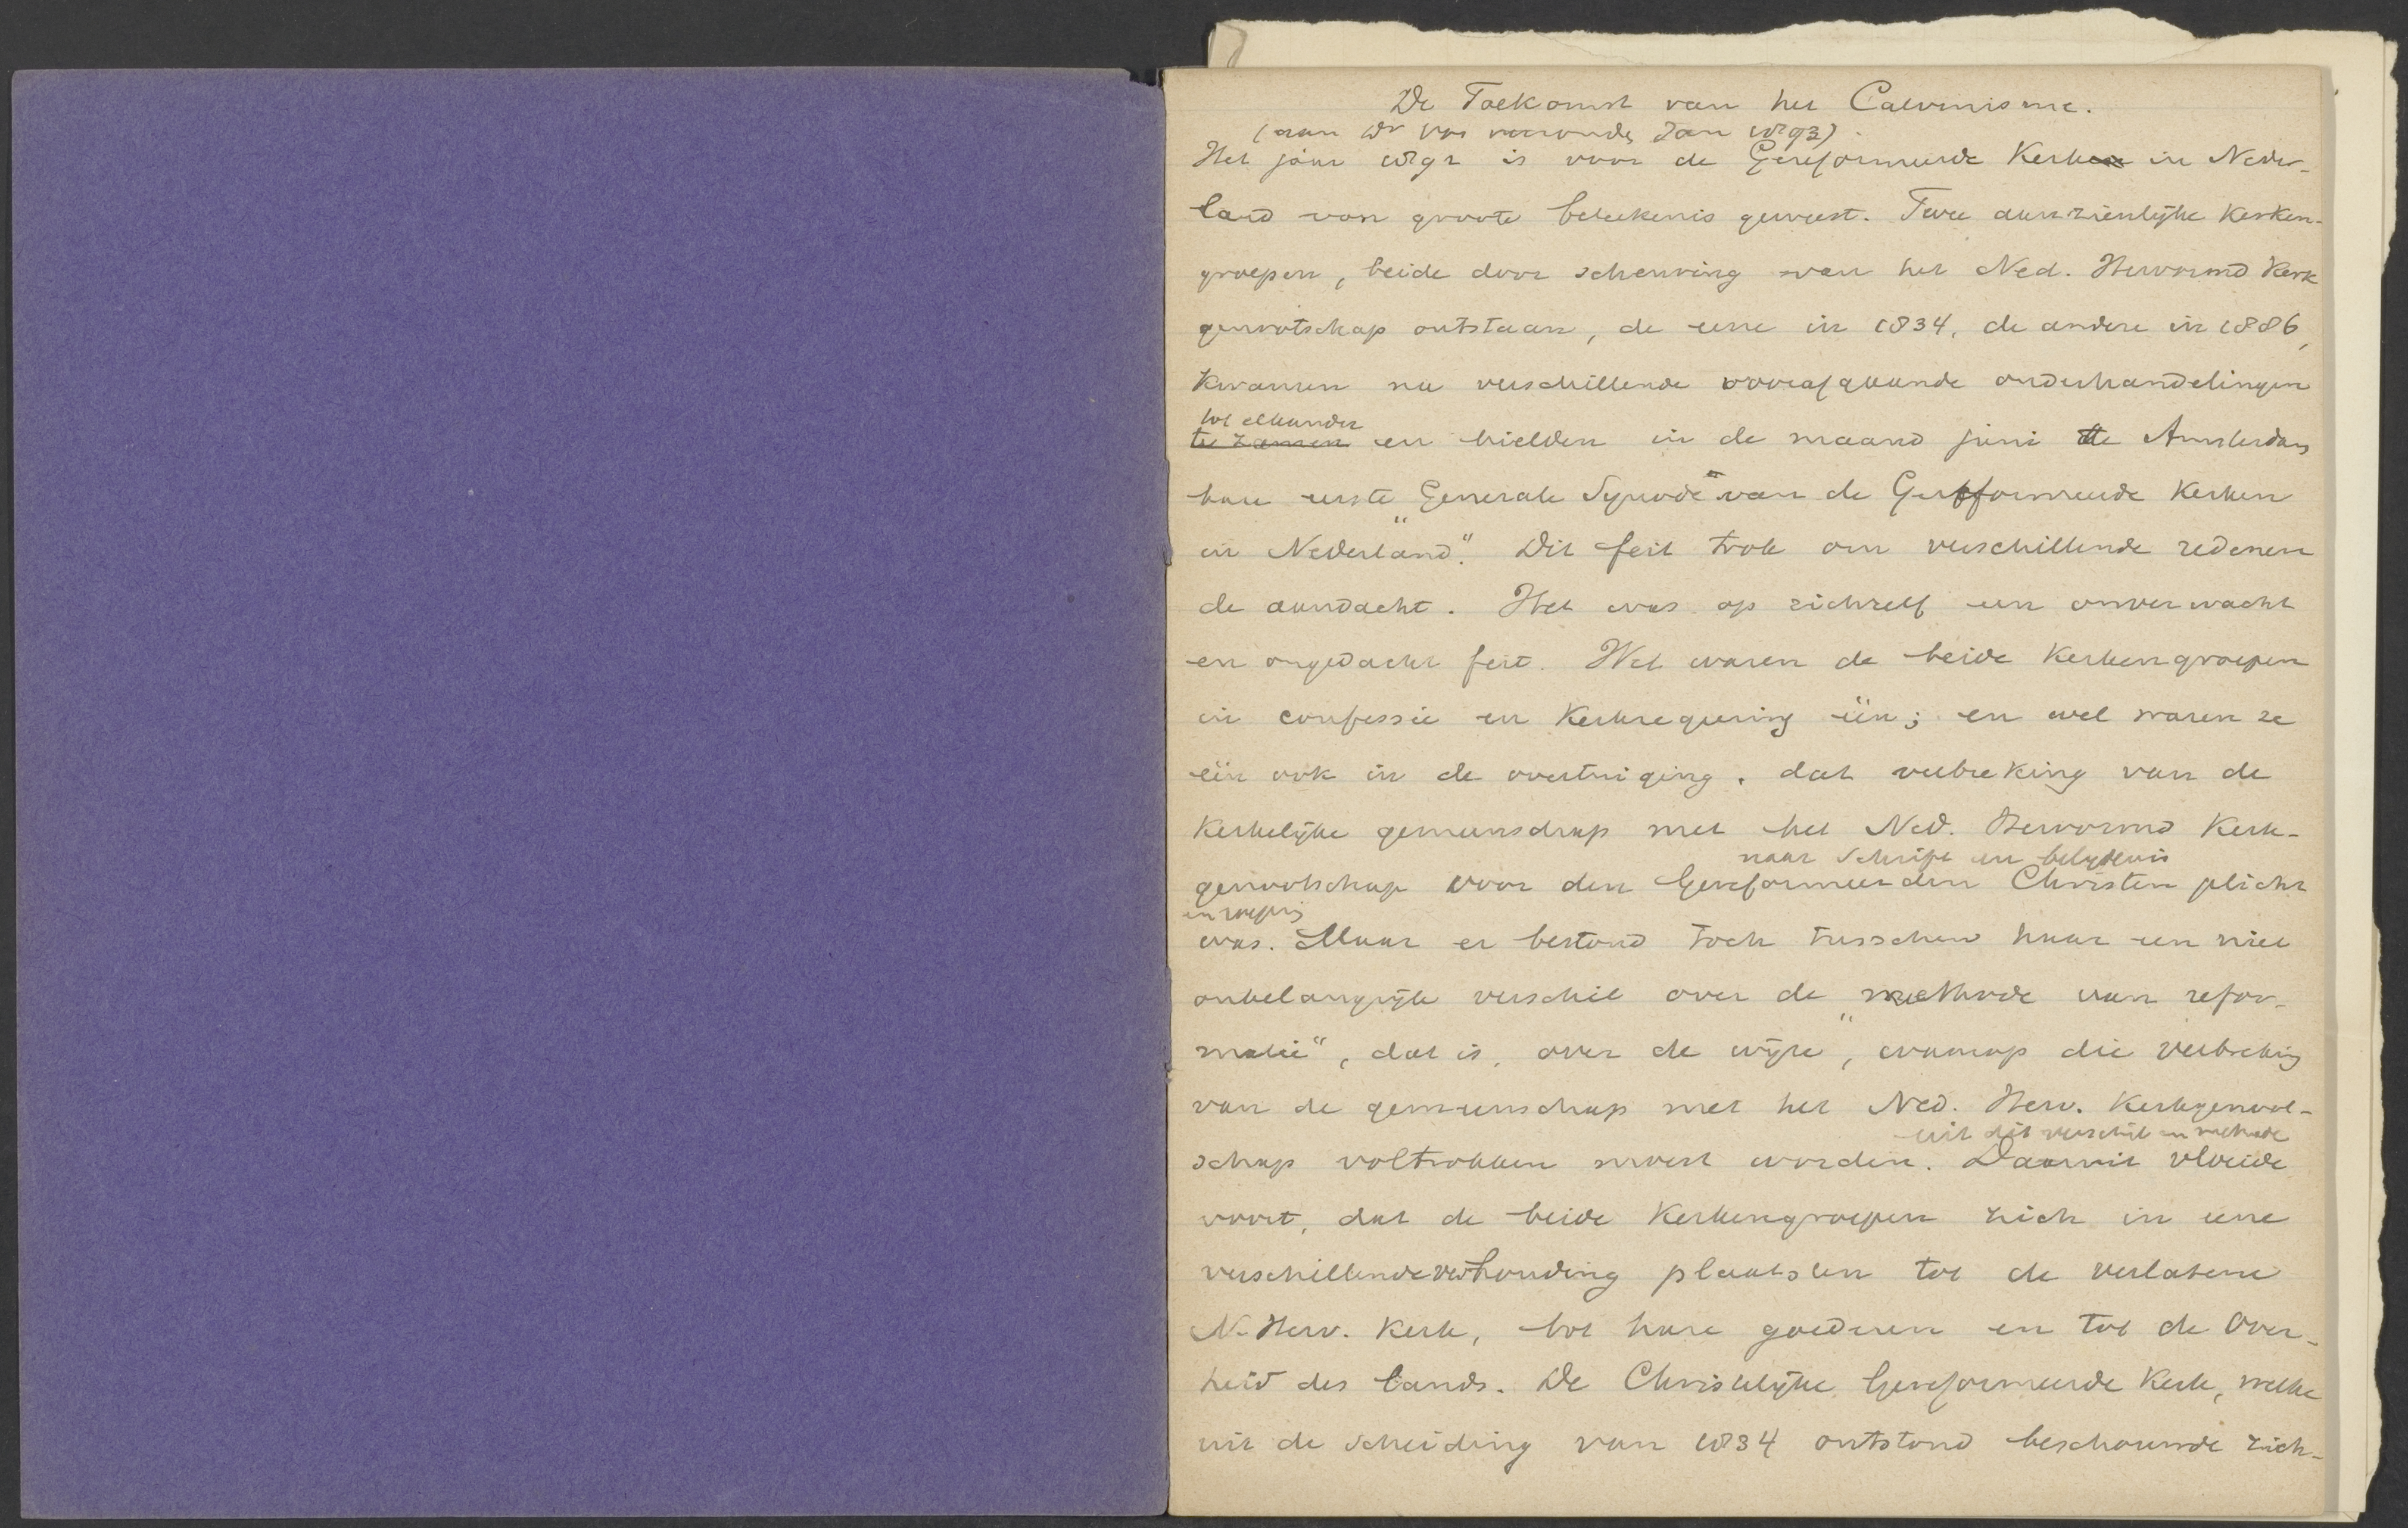 De Toekomst van het Calvinisme.
(aan Dr Vos verzonden Jan 1893).
Het jaar 1892 is voor de Gereformeerde Kerken in Neder-
land van groote beteekenis geweest. Twee aanzienlijke Kerken-
groepen, beide door scheuring van het Ned. Hervormd Kerk
genootschap ontstaan, de eene in 1834, de andere in 1886,
kwamen na verschillende voorafgaande onderhandelingen
tot elkander
te zamen en hielden in de maand juni te Amsterdam
hare eerste „Generale Synode" van de Gereformeerde Kerken
in Nederland". Dit feit trok om verschillende redenen
de aandacht. Het was op zichzelf een onverwacht
en ongedacht feit. Wel waren de beide Kerkengroepen
in confessie en Kerkregeering één; en wel waren ze
één ook in de overtuiging, dat verbreking van de
Kerkelijke gemeenschap met het Ned. Hervormd Kerk-
naar Schrift en belijdenis
genootschap voor den Gereformeerden Christen plicht
en roeping
was. Maar er bestond toch tusschen haar een niet
onbelangrijk verschil over de „methode van refor-
matie", dat is, over de wijze, waarop die verbreking
van de gemeenschap met het Ned. Herv. Kerkgenoot-
uit dit verschil in methode
schap voltrokken moest worden. Daaruit vloeide
voort, dat de beide Kerkengroepen zich in eene
verschillende verhouding plaatsten tot de verlatene
N. Herv. Kerk, tot hare goederen en tot de Over-
heid des lands. De Christelijke Gereformeerde Kerk, welke
uit de Scheiding van 1834 ontstond beschouwde zich-